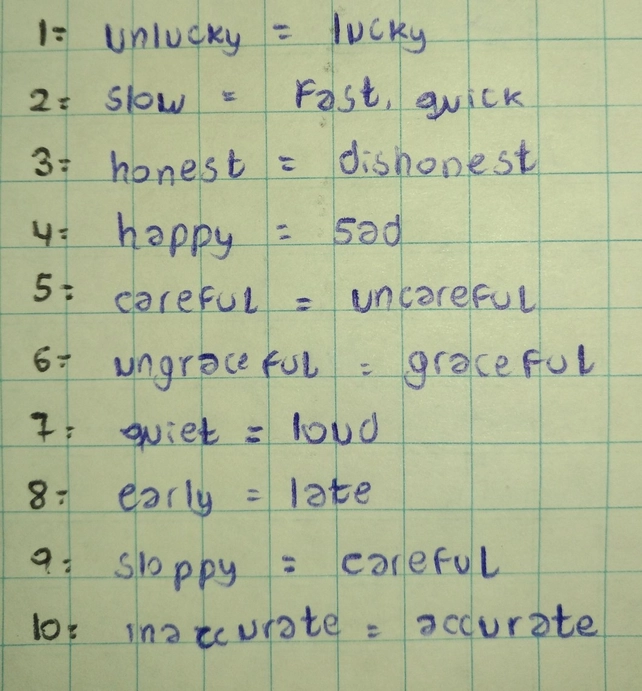 1= unlucky = lucky
2= slow = Fast, quick
3= honest = dishonest
4= happy = sad
5= careful = uncareful
6= ungraceful = graceful
7= quiet = loud
8= early = late
9= sloppy = careful
10= inaccurate = accurate